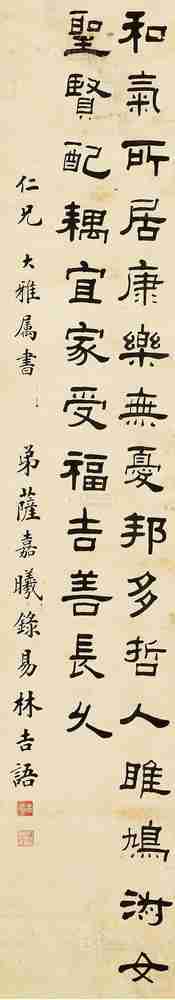 和氣所居康樂無憂邦多哲人雎鳩淑女
聖賢配耦宜家受福吉善長久
仁兄大雅属書 弟薩嘉曦錄易林吉語